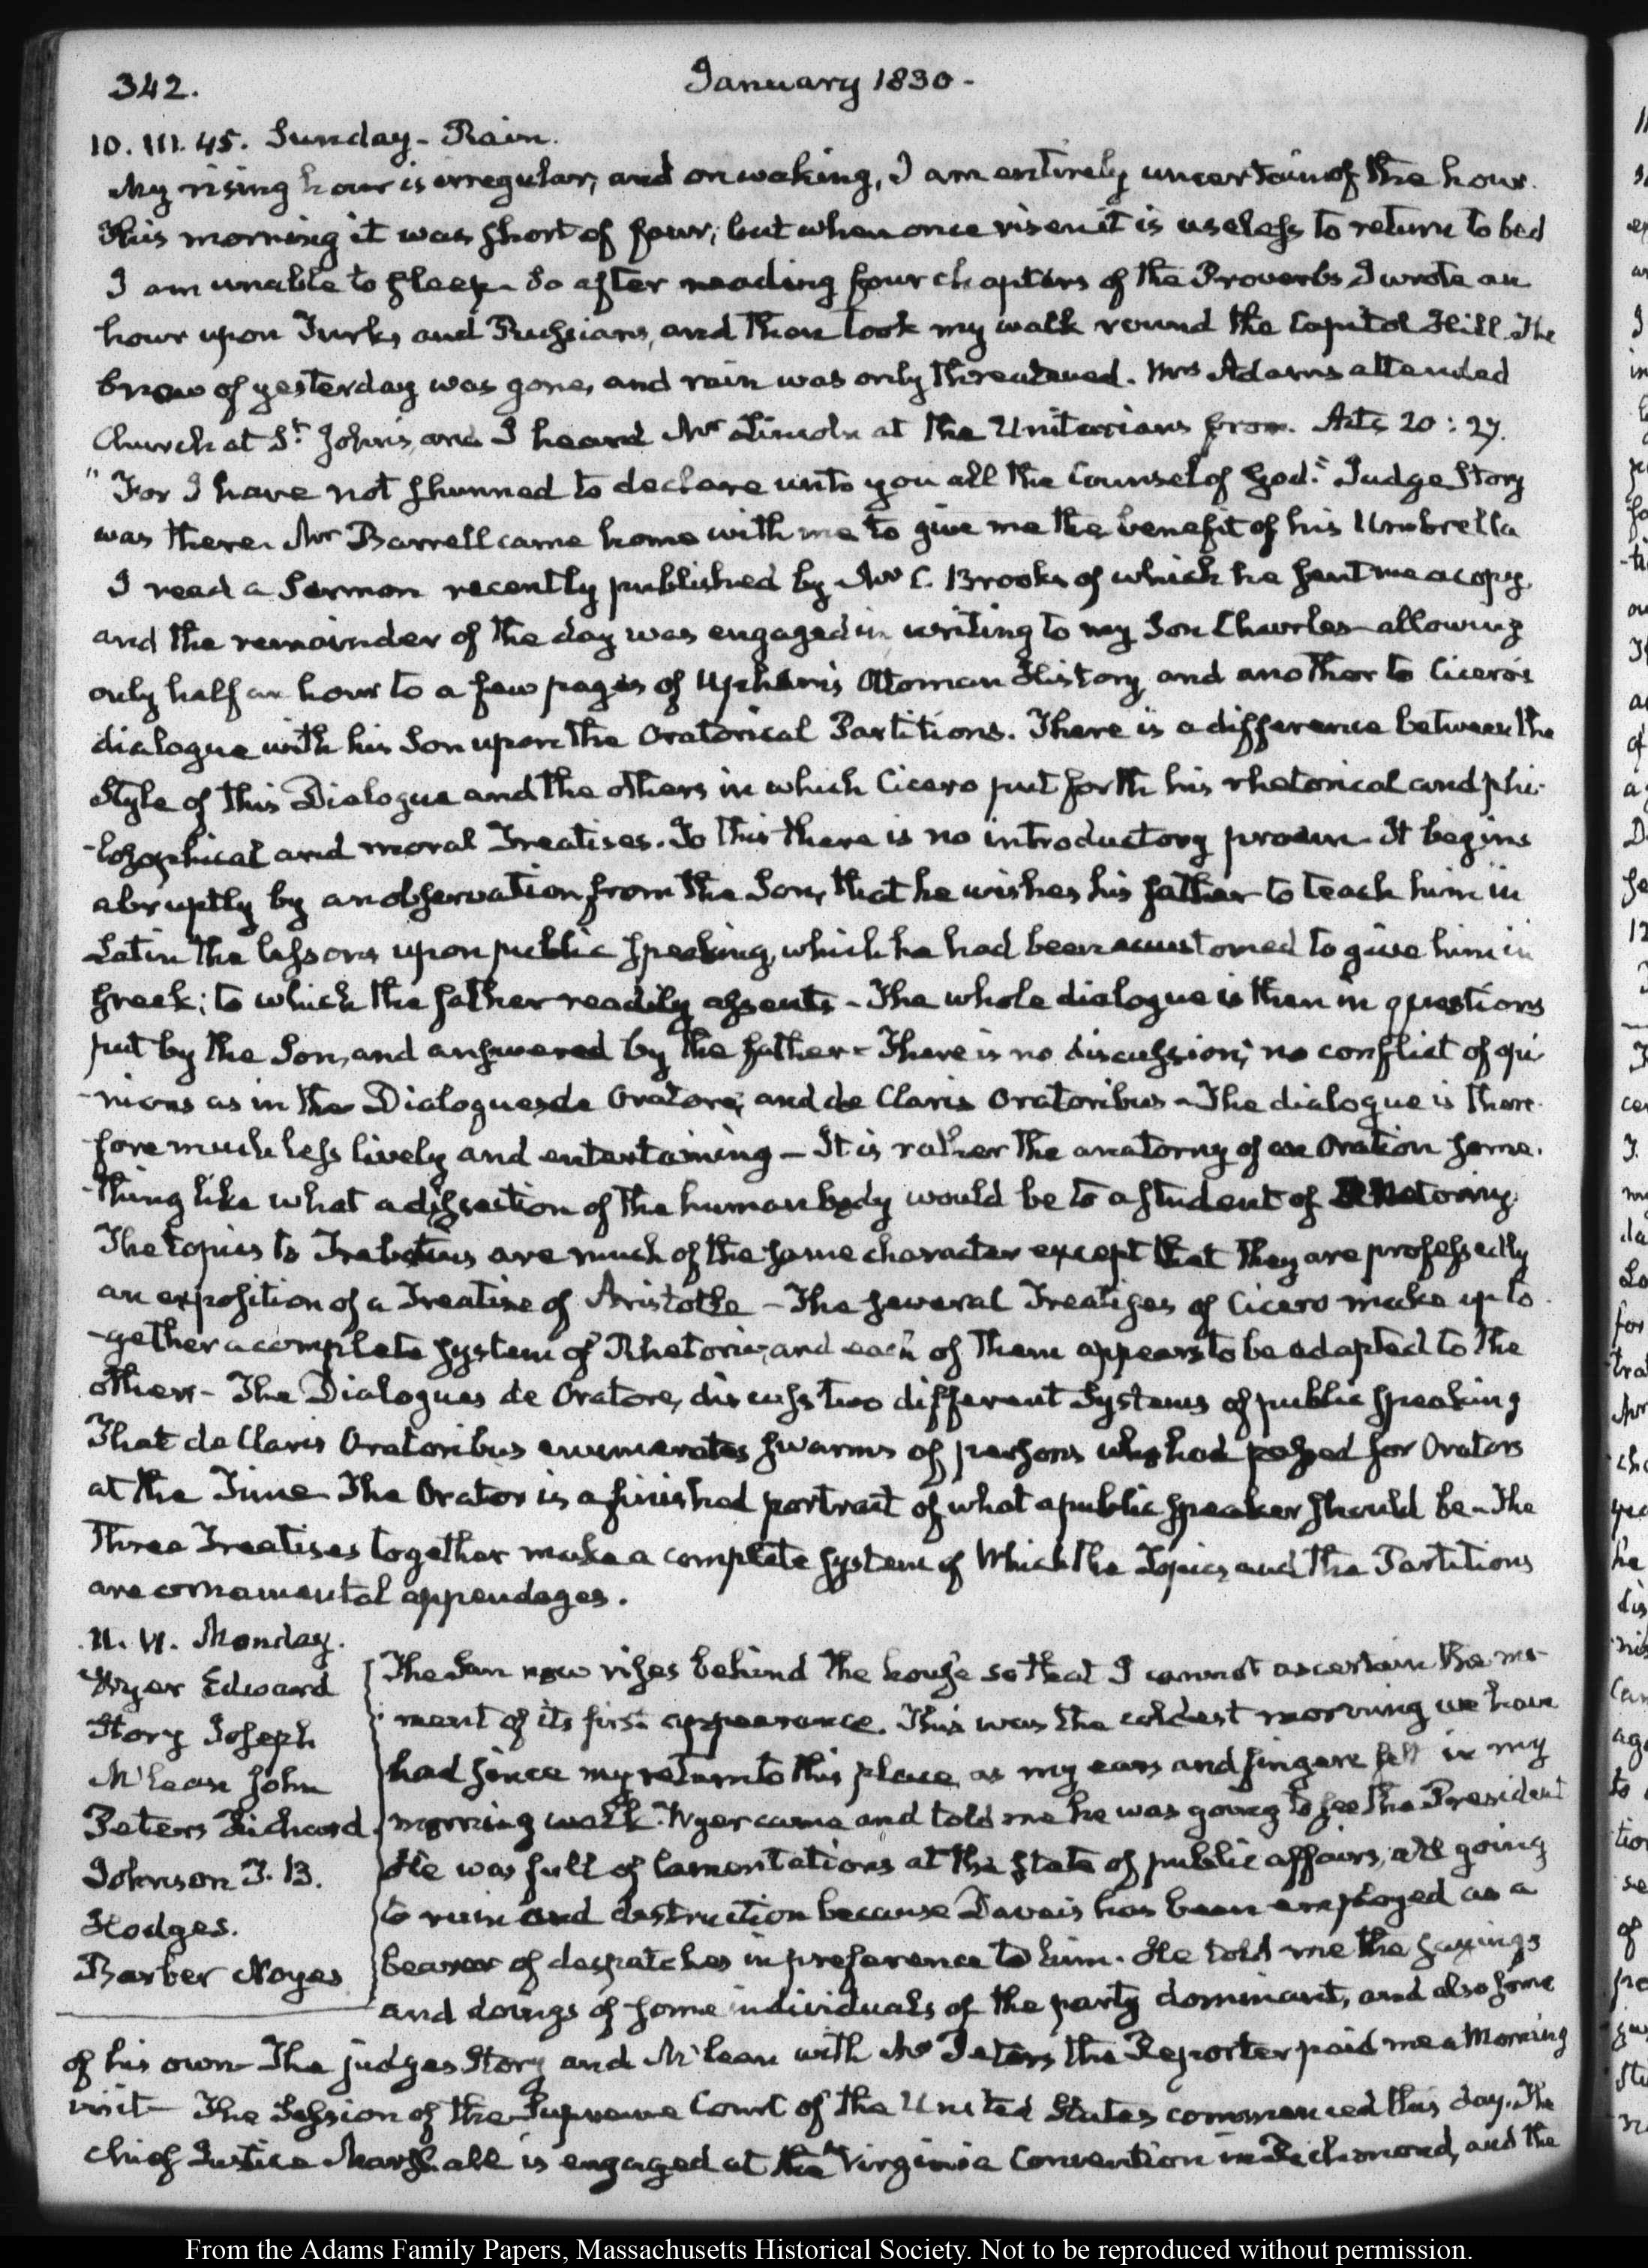 342.
January 1830-
10. III. 45. Sunday- Rain.
My rising hour is irregular, and on waking, I am entirely uncertain of the hour.
This morning it was short of four; but when once risen it is useless to return to bed
I am unable to sleep- So after reading four chapters of the Proverbs I wrote an
hour upon Turks and Russians, and then took my walk round the Capitol Hill. The
snow of yesterday was gone, and rain was only threatened. Mrs Adams attended
Church at St. John's, and I heard Mr Lincoln at the Unitarians from. Acts 20: 27.
"For I have not shunned to declare unto you all the Counsel of God." Judge Story
was there. Mr Barrell came home with me to give me the benefit of his Umbrella
I read a Sermon recently published by Mr C. Brooks of which he sent me a copy,
and the remainder of the day was engaged in writing to my Son Charles- allowing
only half an hour to a few pages of Upham's Ottoman History, and another to Cicero's
dialogue with his Son upon the Oratorical Partitions. There is a difference between the
style of this Dialogue and the others in which Cicero put forth his rhetorical and phi-
-losophical and moral Treatises. To this there is no introductory proem- It begins
abruptly by an observation from the Son, that he wishes his father to teach him in
Latin the lessons upon public speaking, which he had been accustomed to give him in
Greek; to which the father readily assents- The whole dialogue is then in questions
put by the Son, and answered by the father- There is no discussion; no conflict of opi-
-nions as in the Dialogues de Oratore, and de Claris Oratoribus- The dialogue is there-
-fore much less lively and entertaining- It is rather the anatomy of an Oration some-
-thing like what a dissection of the human body would be to a student of
The topics to Trebatius are much of the same character except that they are professedly
an exposition of a Treatise of Aristotle- The several Treatises of Cicero make up to-
-gether a complete system of Rhetoric, and each of them appears to be adapted to the
others- The Dialogues de Oratore, discuss two different Systems of public speaking
That de Claris Oratoribus enumerates swarms of persons who had passed for Orators
at the Time- The Orator is a finished portrait of what a public speaker should be- The
Three Treatises together make a complete system of Which the Topics, and the Partitions
are ornamental appendages.
11. VI. Monday.
Wyer Edward
Story Joseph
McLean John
Peters Richard
Johnson J. B.
Hodges.
Barber Noyes
The Sun now rises behind the house so that I cannot ascertain the mo-
-ment of its first appearance. This was the coldest morning we have
had since my return to this place, as my ears and fingers felt in my
morning walk. Wyer came and told me he was going to see the President
He was full of lamentations at the state of public affairs, all going
to ruin and destruction because Davis has been employed as a
bearer of despatches in preference to him. He told me the sayings
and doings of some individuals of the party dominant, and also some
of his own- The judges Story and McLean with Mr Peters the Reporter paid me a Morning
visit- The Session of the Supreme Court of the United States commenced this day. The
chief Justice Marshall is engaged at the Virginia Convention in Richmond, and the
From the Adams Family Papers, Massachusetts Historical Society. Not to be reproduced without permission.